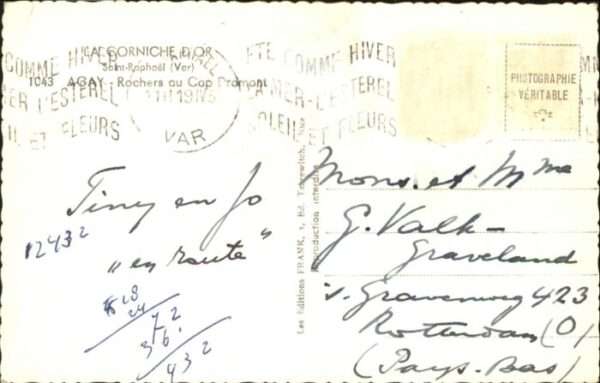 LA CORNICHE D'OR
Saint-Raphaël (Var)
1043 AGAY - Rochers au Cap Dramont
COMME HIVER
MER L'ESTEREL
ET FLEURS
VAR
ETE COMME HIVER
LA MER - L'ESTEREL
SOLEIL ET FLEURS
PHOTOGRAPHIE
VÉRITABLE
Les Editions FRANK, 2, Ed. Tzarewitch, Nice
Reproduction interdite
Tiny en Jo
12432
"en route"
28
24
72
36.
432
Mons. et Mme
G. Valk-
Graveland
's Gravenweg 423
Rotterdam (O)
(Pays-Bas)